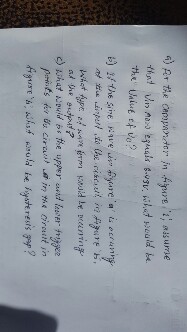 a) For the comparator in figure 'a', assume
that Vin now equals 0.05V, what would be
the value of Vo?
b) If the sine wave in figure 'a' is occuring
at the input to the circuit in figure 'b',
what type of wave form would be occuring
at the output?
c) What would be the upper and lower trigger
points for the circuit in the circuit in
figure 'b', what would be hysteresis gap?